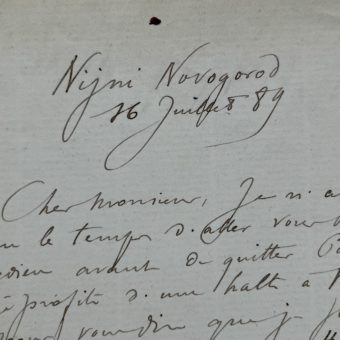 Nijni Novogorod
16 Juillet 89
Cher Monsieur, Je n'a
le temps d'aller vous
dieu avant de quitter
profité d'une halte à
vous dire que je